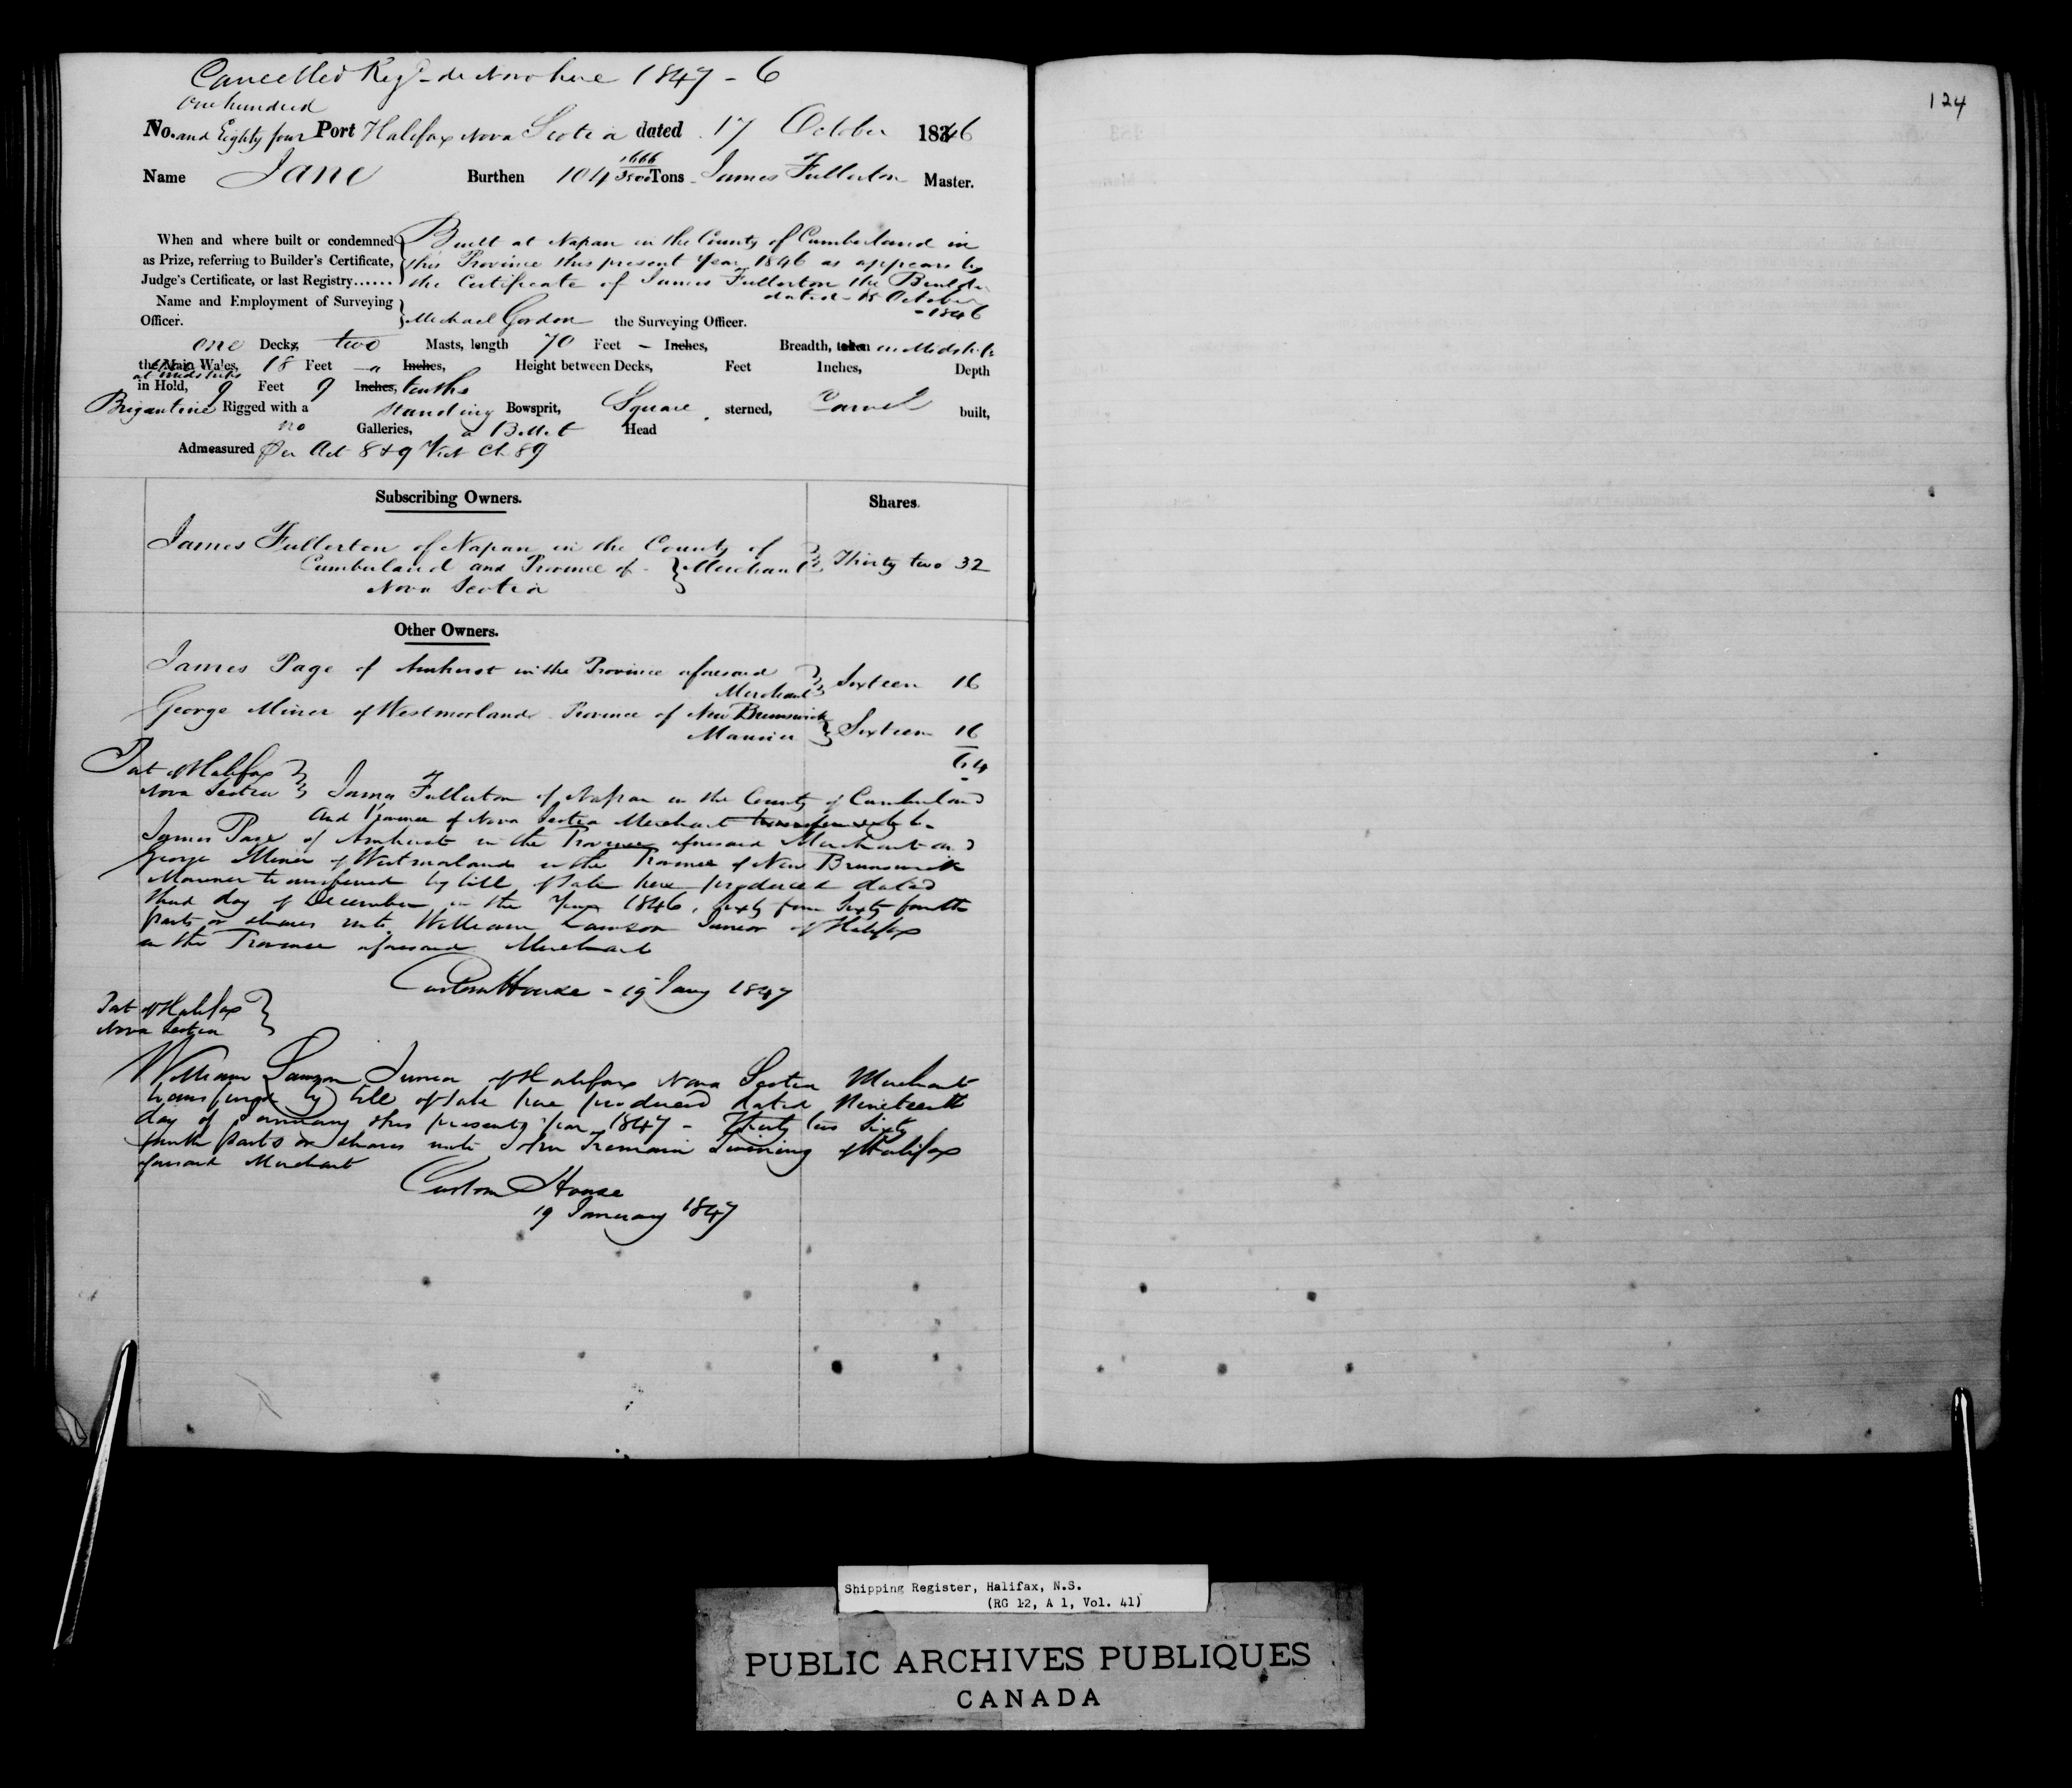 Cancelled Regd de Novo here 1847 - 6
One hundred
No. and Eighty four Port Halifax Nova Scotia dated 17 October 1846
Name Jane Burthen 104 1666/3500 Tons James Fullerton Master.
When and where built or condemned Built at Napan in the County of Cumberland in
as Prize, referring to Builder's Certificate, this Province this present Year 1846 as appears by
Judge's Certificate, or last Registry...... the Certificate of James Fullerton the Builder
dated 15 October
- 1846
Name and Employment of Surveying
Officer. Michael Gordon the Surveying Officer.
one Decks, two Masts, length 70 Feet - Inches, Breadth, taken in Midships
the Main Wales, 18 Feet Inches, Height between Decks, Feet Inches, Depth
at Midships
in Hold, 9 Feet 9 Inches, tenths
Brigantine Rigged with a standing Bowsprit, Square sterned, Carvel built,
no Galleries, a Billet Head
Admeasured Per Act 8 & 9 Vict Ch 89
Subscribing Owners. Shares.
James Fullerton of Napan in the County of
Cumberland and Province of Merchant Thirty two 32
Nova Scotia
Other Owners.
James Page of Amherst in the Province aforesaid
Merchant Sixteen 16
George Miner of Westmorland Province of New Brunswick
Mariner Sixteen 16
64
Port of Halifax
Nova Scotia James Fullerton of Napan in the County of Cumberland
and Province of Nova Scotia Merchant
James Page of Amherst in the Province aforesaid Merchant and
George Miner of Westmorland in the Province of New Brunswick
Mariner transferred by bill of Sale here produced dated
third day of December in the Year 1846, Sixty four Sixty fourth
parts or shares unto William Lawson Junior of Halifax
in the Province aforesaid Merchant
Custom House - 19 Jany 1847
Port of Halifax
Nova Scotia
William Lawson Junior of Halifax Nova Scotia Merchant
transferred by bill of Sale here produced dated Nineteenth
day of January this present year 1847 - Thirty two Sixty
fourth parts or shares unto John Tremain Twining of Halifax
aforesaid Merchant
Custom House
19 January 1847
124
Shipping Register, Halifax, N.S.
(RG 12, A 1, Vol. 41)
PUBLIC ARCHIVES PUBLIQUES
CANADA